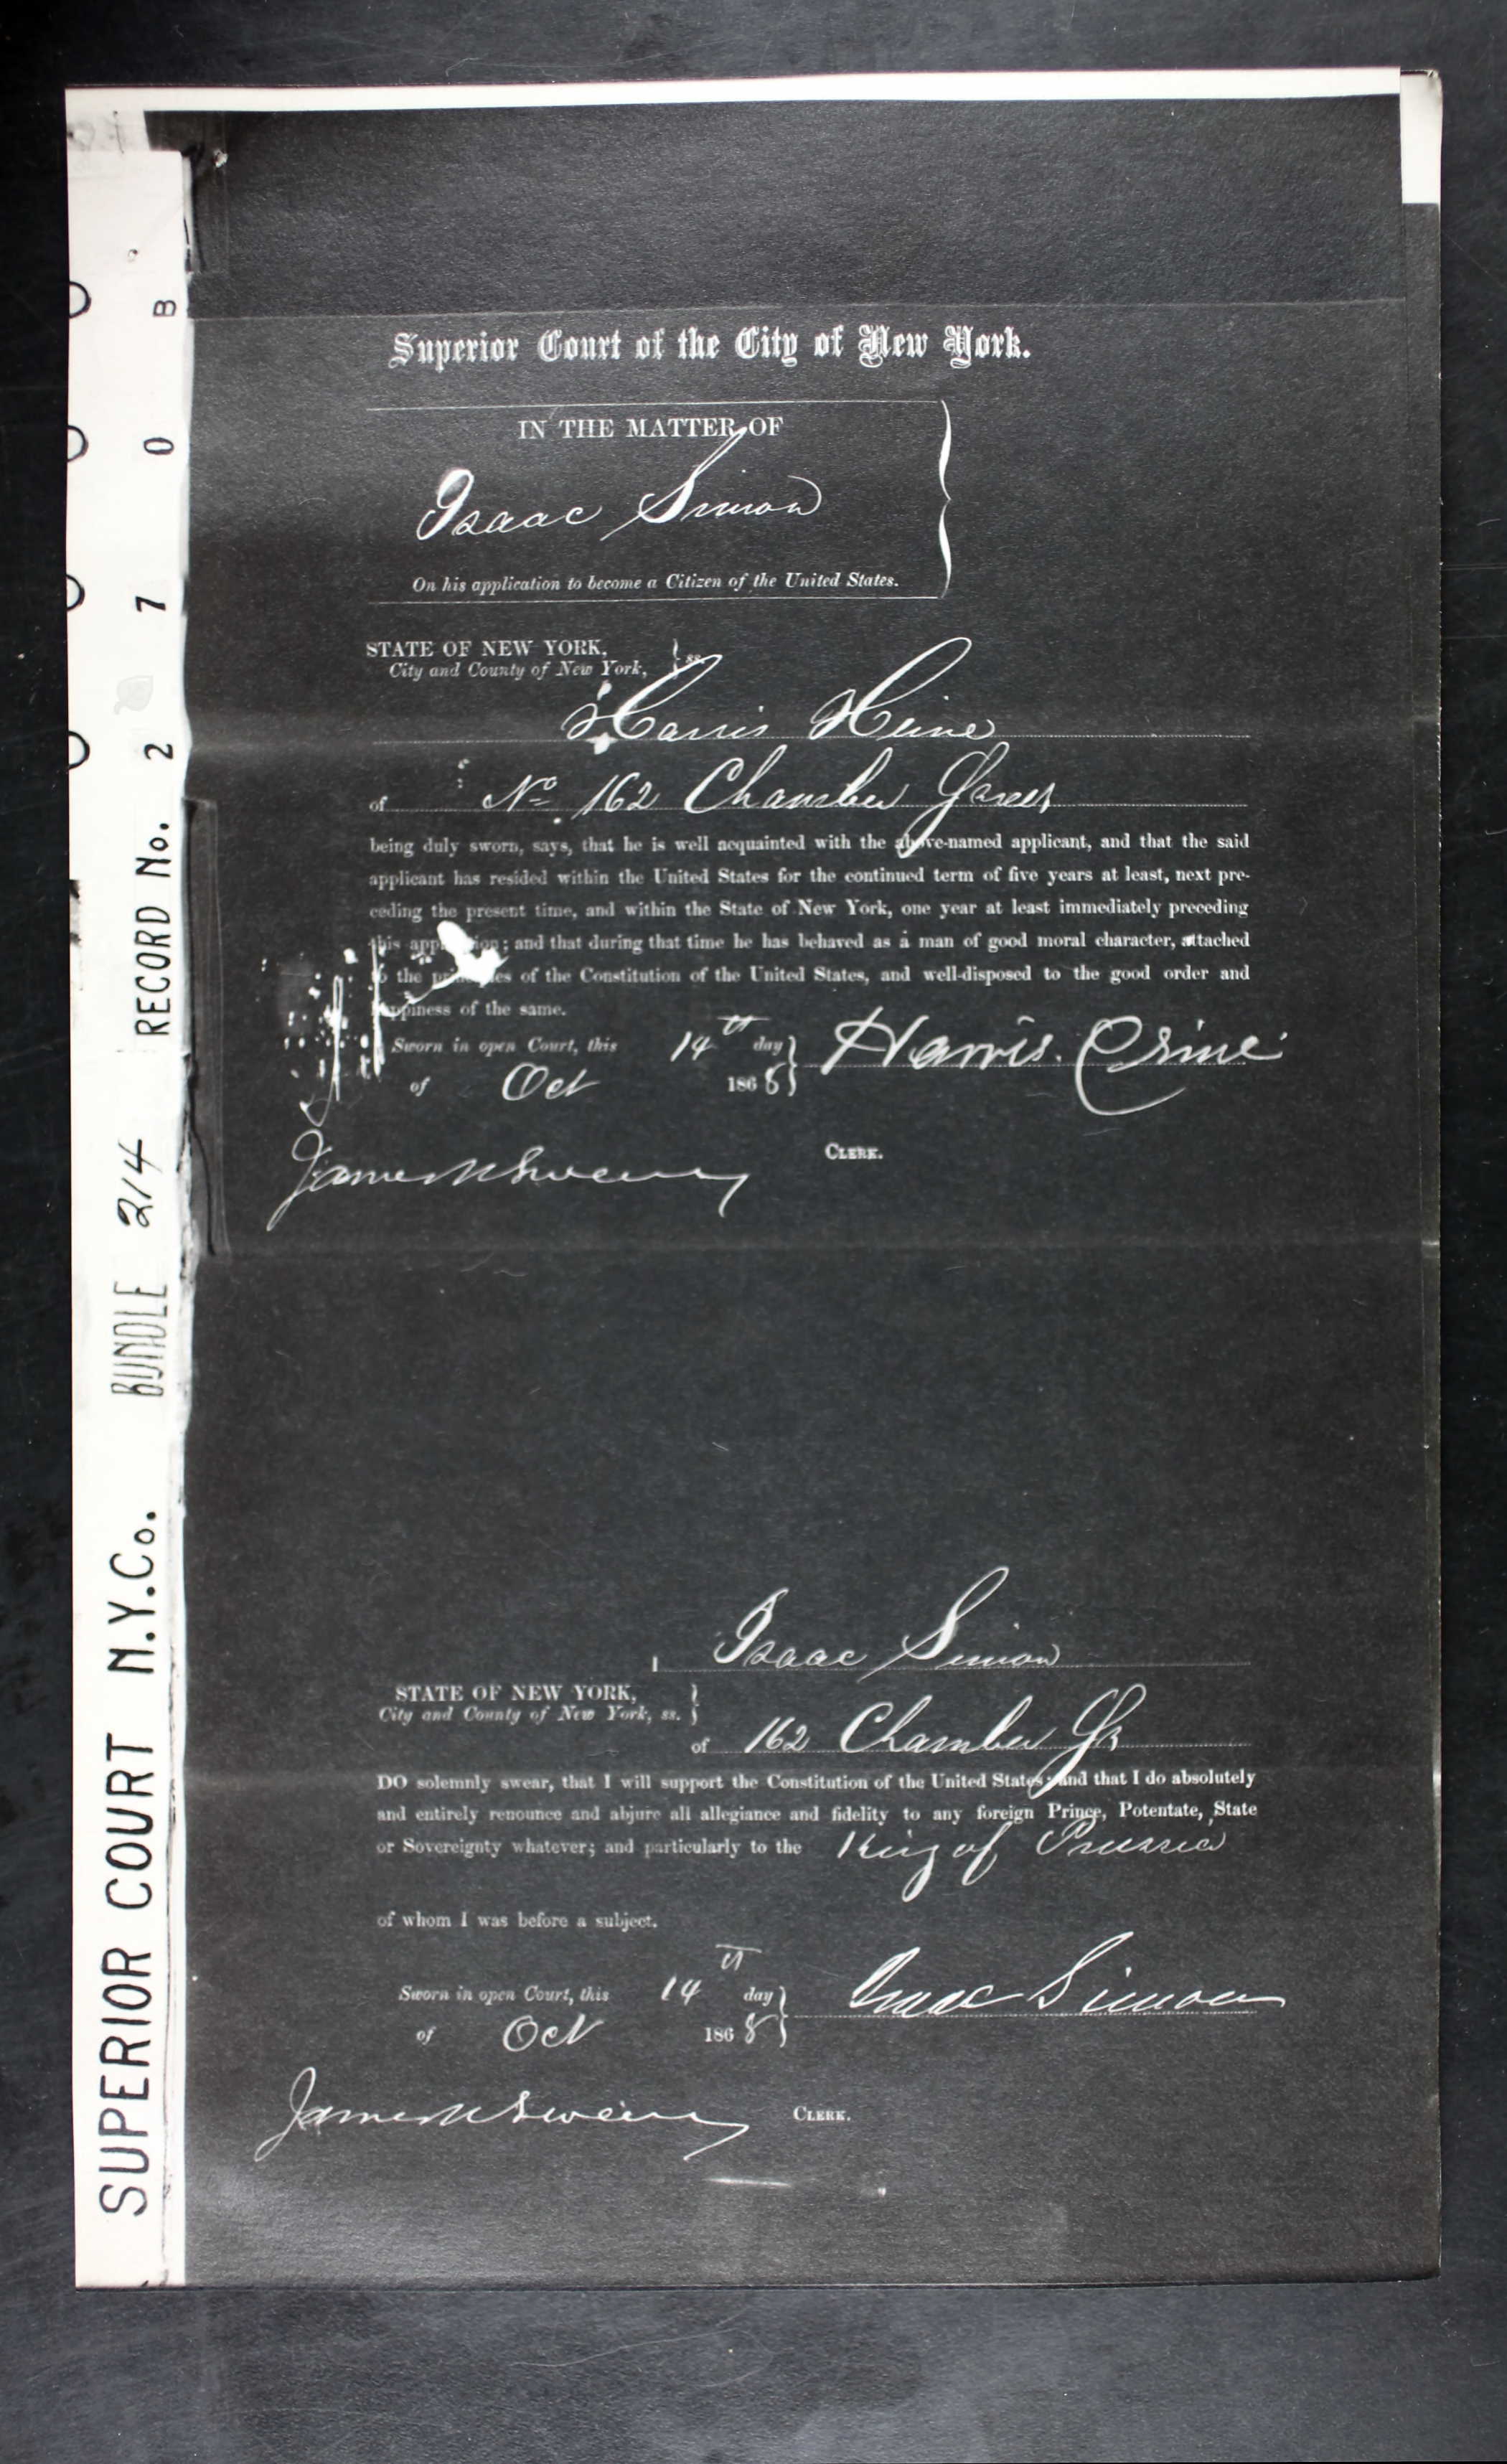 Superior Court of the City of New York.
IN THE MATTER OF
Isaac Simon
On his application to become a Citizen of the United States.
STATE OF NEW YORK,
City and County of New York, } ss.
Harris Heine
of No. 162 Chamber Street
being duly sworn, says, that he is well acquainted with the above-named applicant, and that the said
applicant has resided within the United States for the continued term of five years at least, next pre-
ceding the present time, and within the State of New York, one year at least immediately preceding
this application; and that during that time he has behaved as a man of good moral character, attached
to the principles of the Constitution of the United States, and well-disposed to the good order and
happiness of the same.
Sworn in open Court, this 14th day } Harris
of Oct 1868
James M Sweeny CLERK.
I Isaac Simon
STATE OF NEW YORK,
City and County of New York, ss. }
of 162 Chamber St
DO solemnly swear, that I will support the Constitution of the United States; and that I do absolutely
and entirely renounce and abjure all allegiance and fidelity to any foreign Prince, Potentate, State
or Sovereignty whatever; and particularly to the King of Prussia
of whom I was before a subject.
Sworn in open Court, this 14th day } Isaac Simon
of Oct 1868
James M Sweeny CLERK.
SUPERIOR COURT N.Y.Co. BUNDLE 214 RECORD No. 2 7 0 B